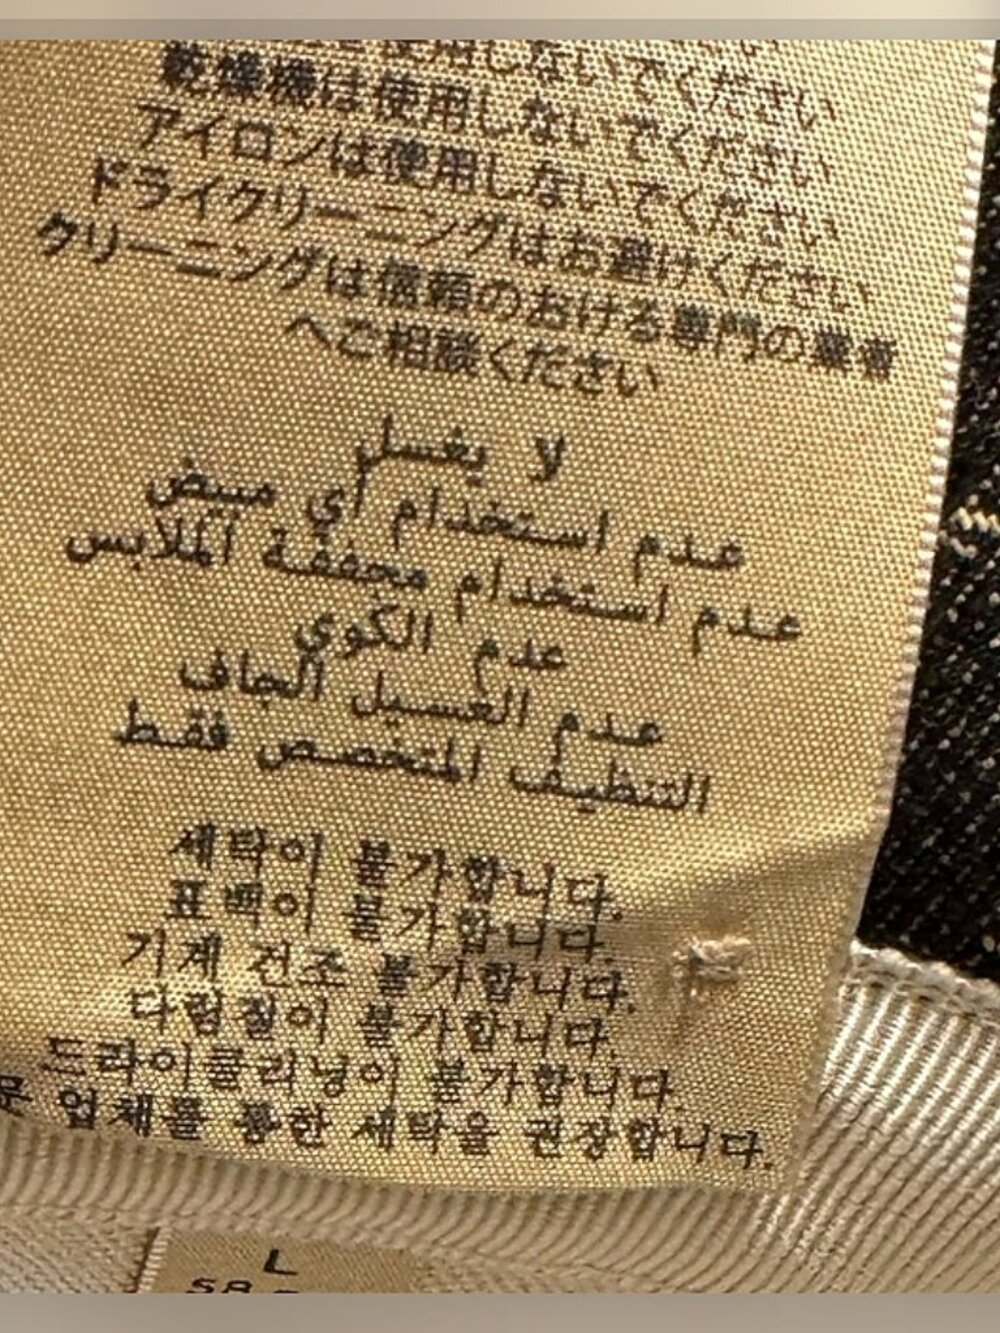 使用しないでください
乾燥機は使用しないでください
アイロンは使用しないでください
ドライクリーニングはお避けください
クリーニングは信頼のおける専門の業者
へご相談ください
لا يغسل
عدم استخدام أي مبيض
عدم استخدام مجففة الملابس
عدم الكوي
عدم الغسيل الجاف
التنظيف المتخصص فقط
세탁이 불가합니다.
표백이 불가합니다.
기계 건조 불가합니다.
다림질이 불가합니다.
드라이클리닝이 불가합니다.
문 업체를 통한 세탁을 권장합니다.
L